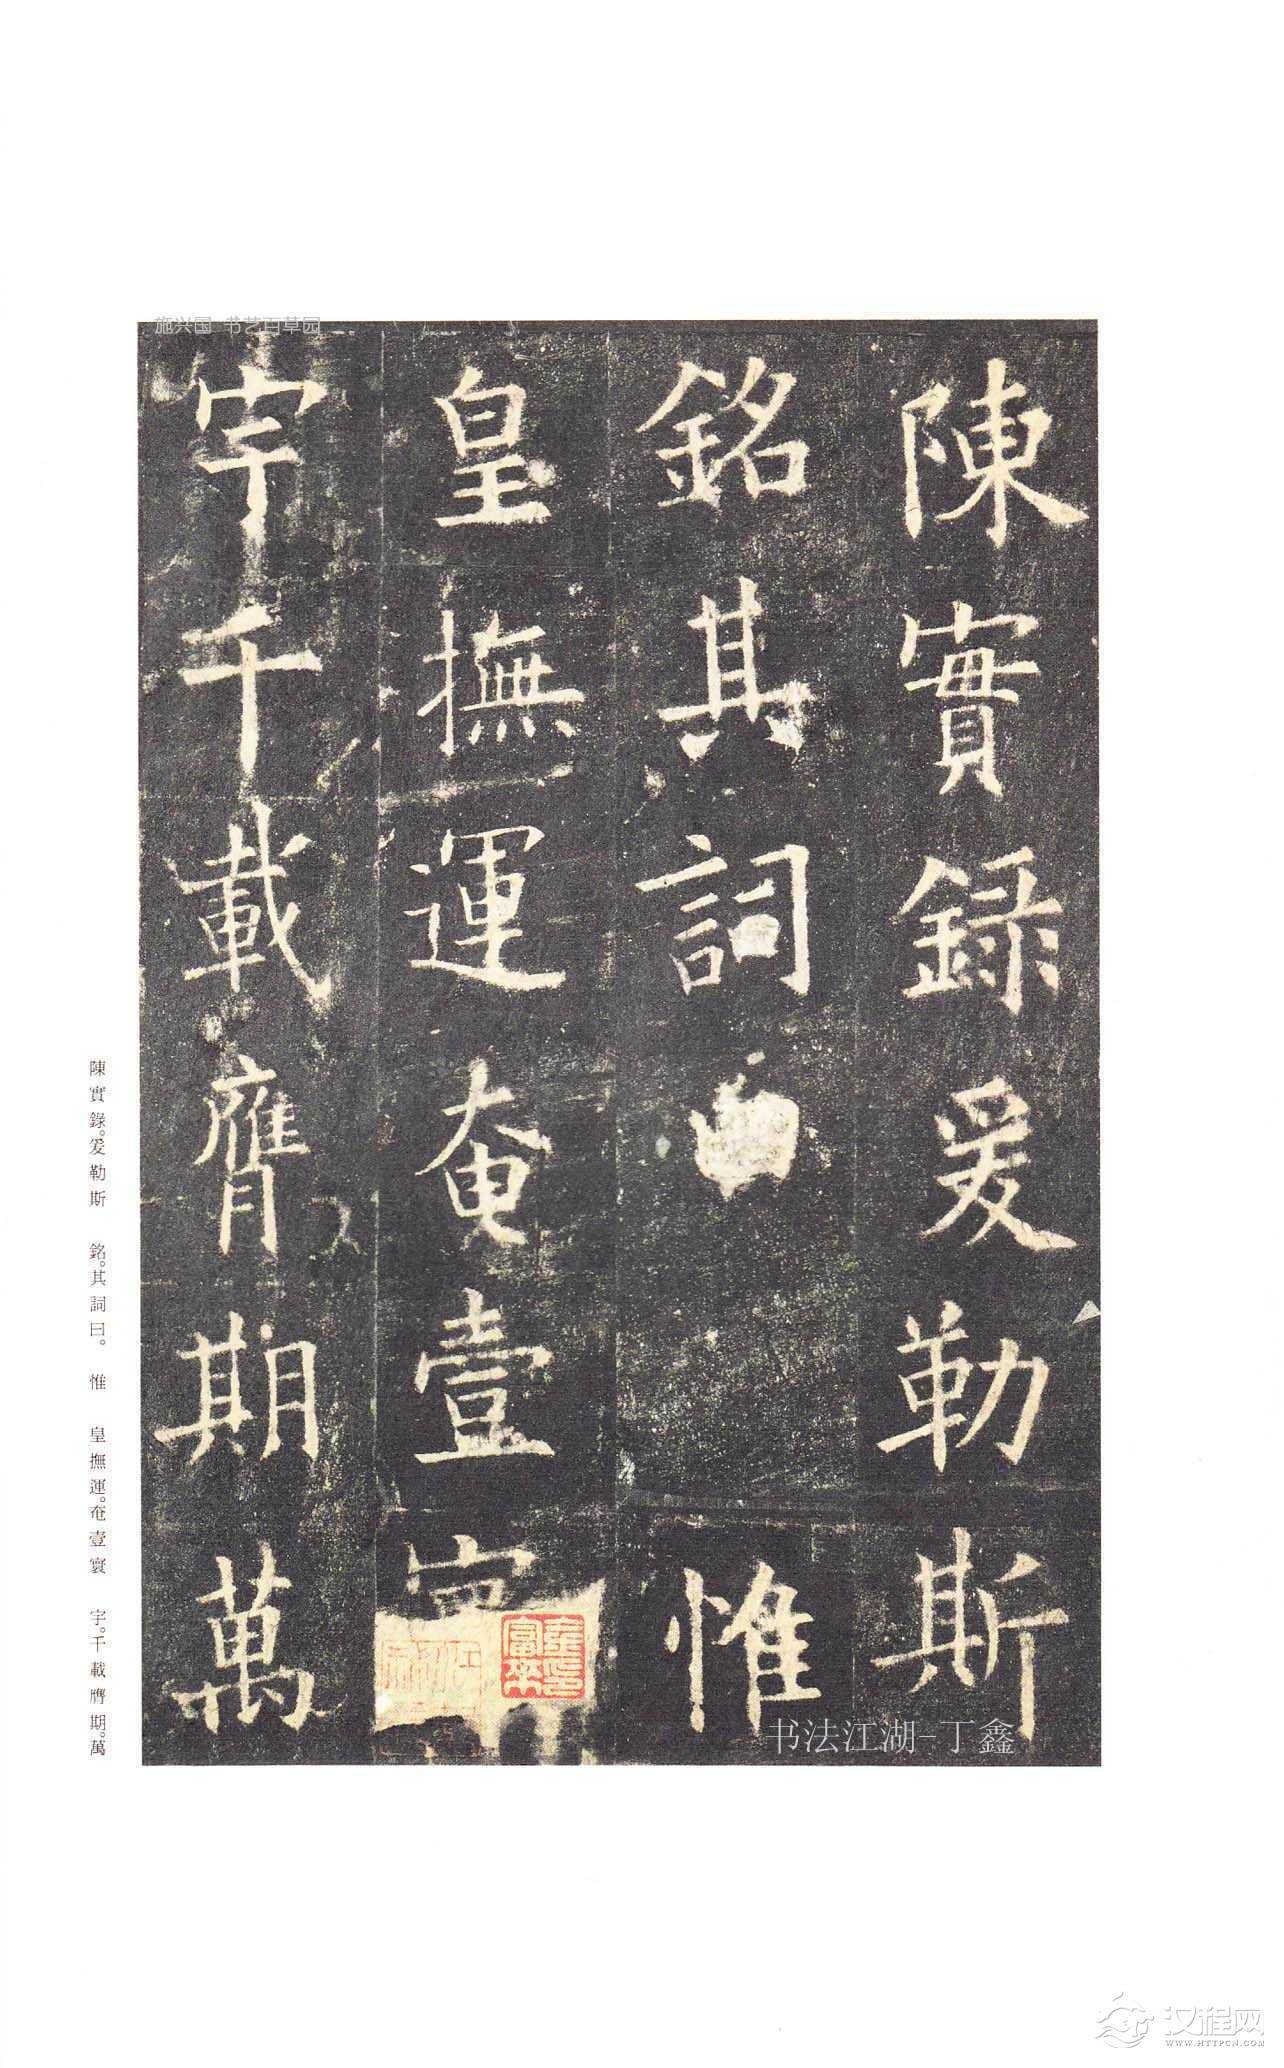 陳實録爰勒斯
銘其詞曰惟
皇撫運奄壹寰
宇千載膺期萬
陳實錄。爰勒斯　銘。其詞曰。　惟　皇撫運。奄壹寰　宇。千載膺期。萬
施兴国 书艺百草园
书法江湖-丁鑫
汉程网
WWW.HTTPCN.COM